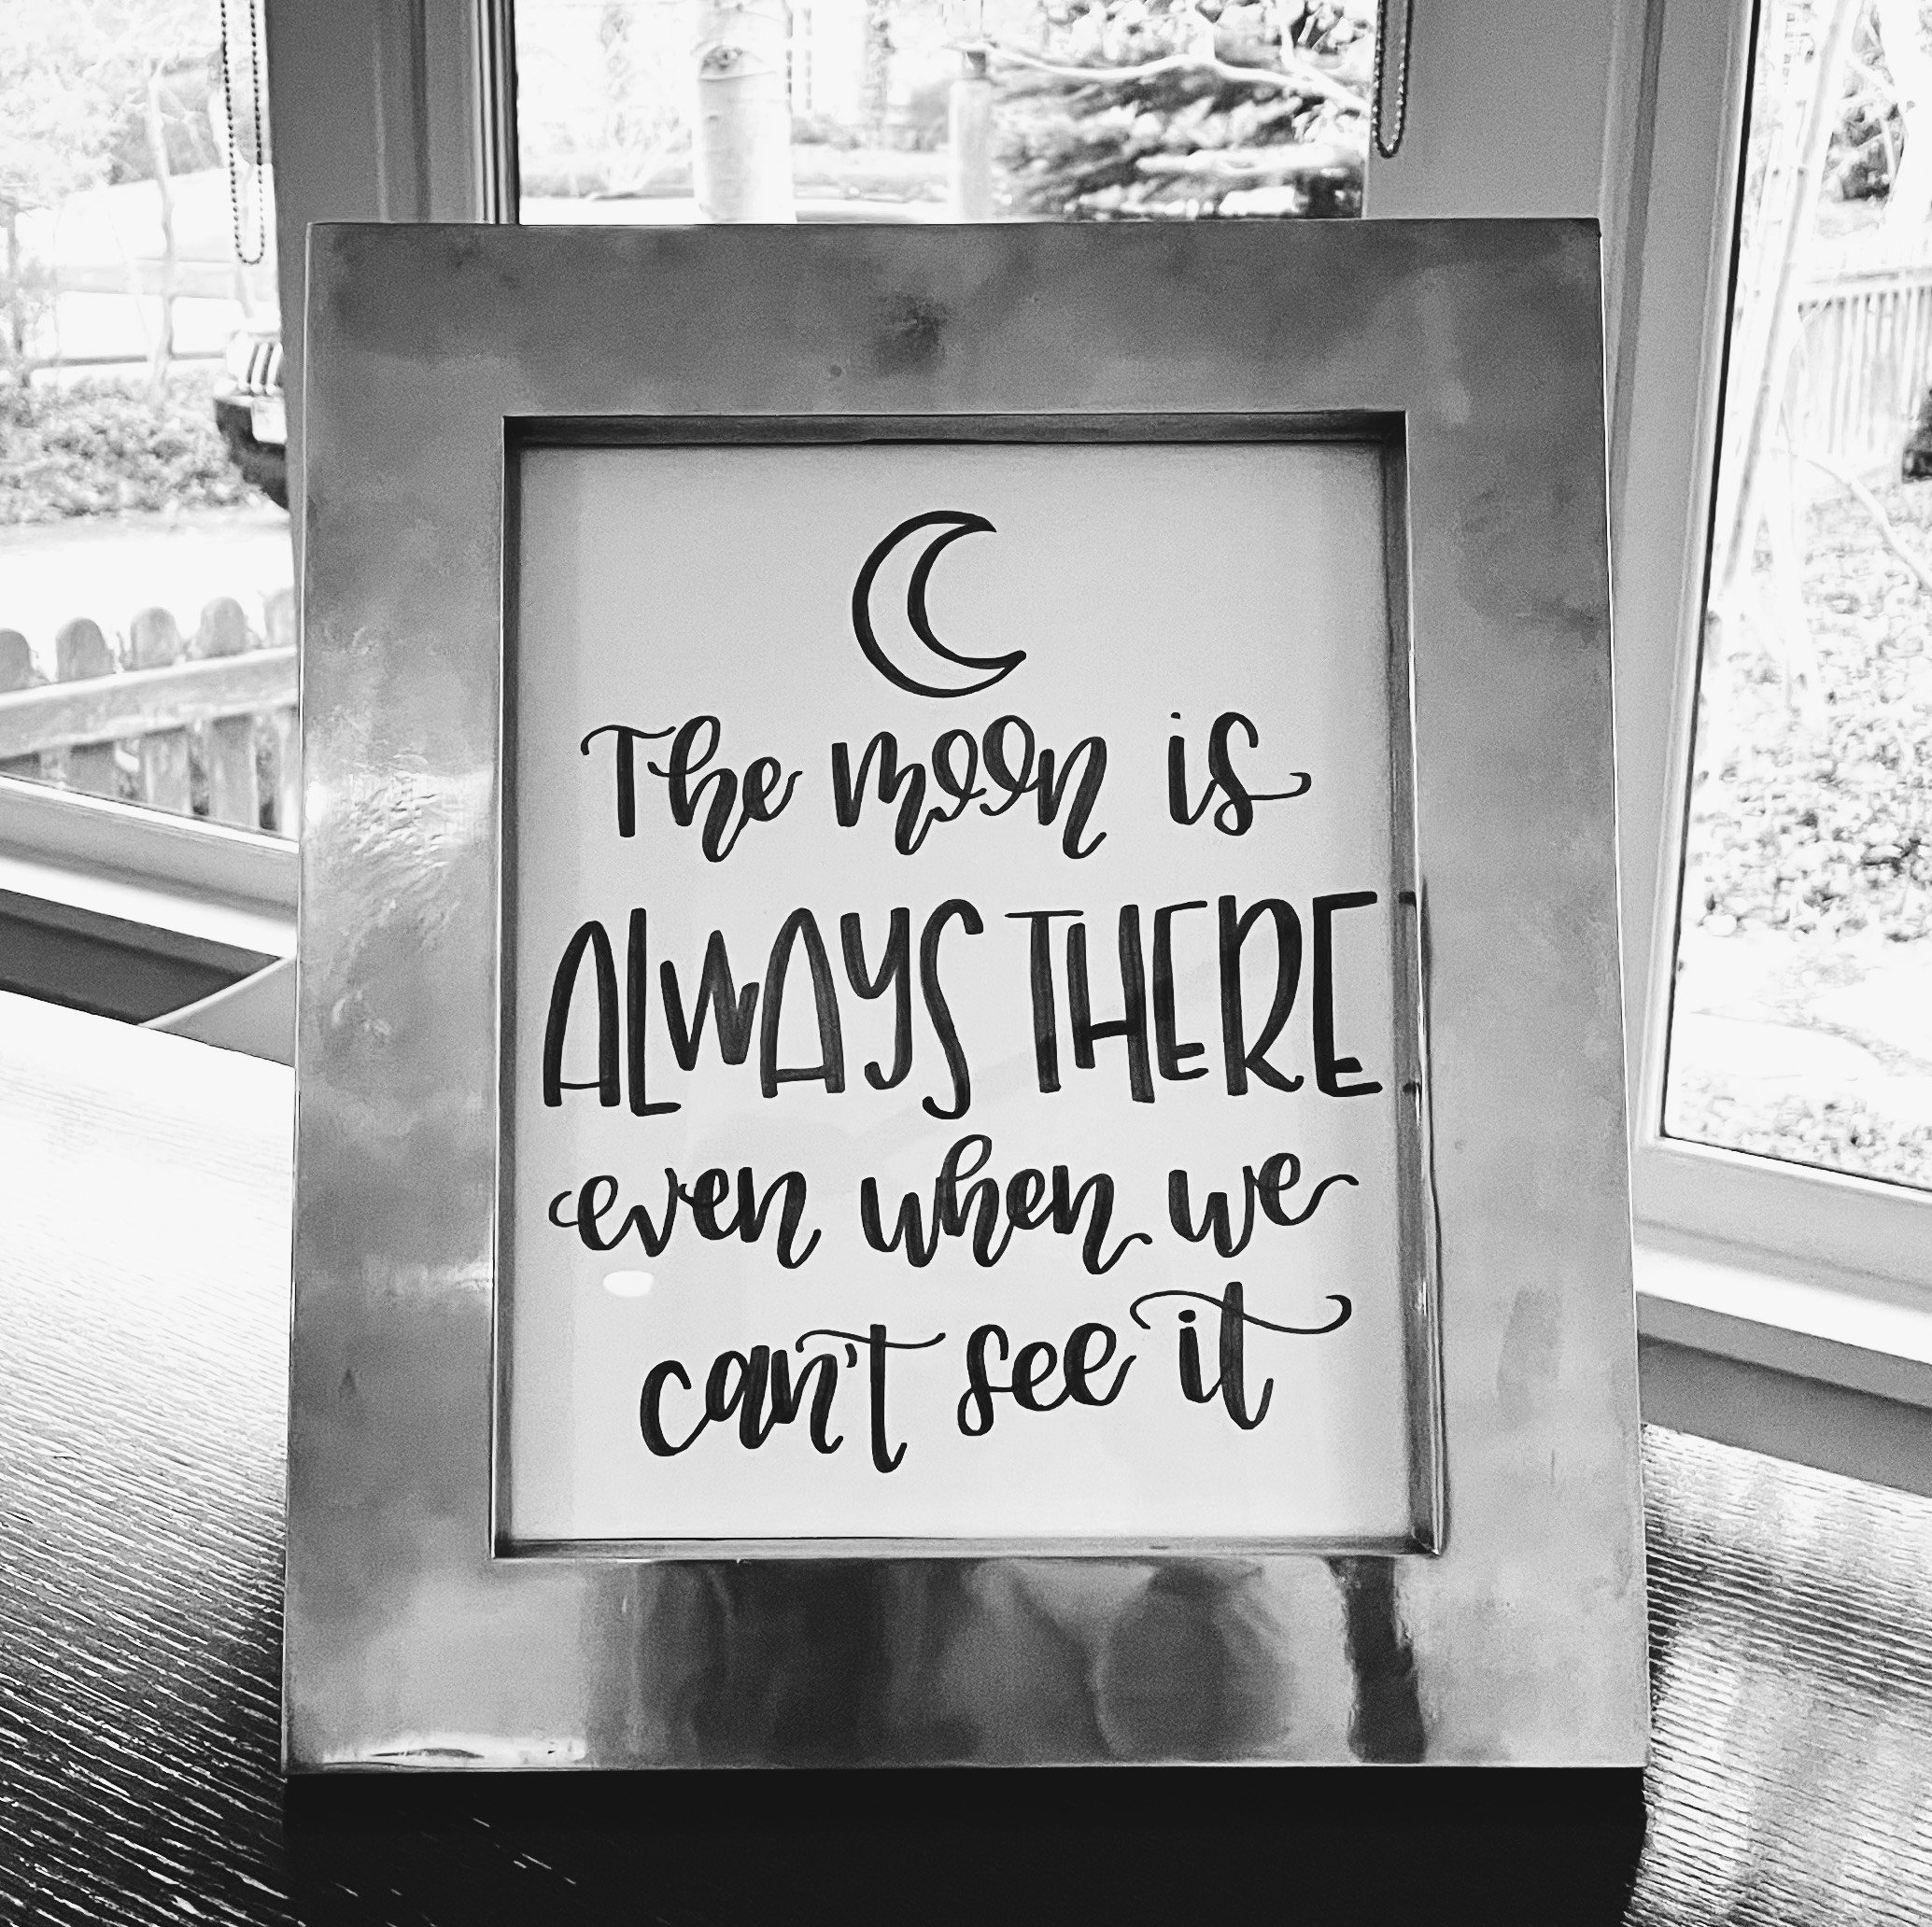 The moon is
ALWAYS THERE
even when we
can't see it